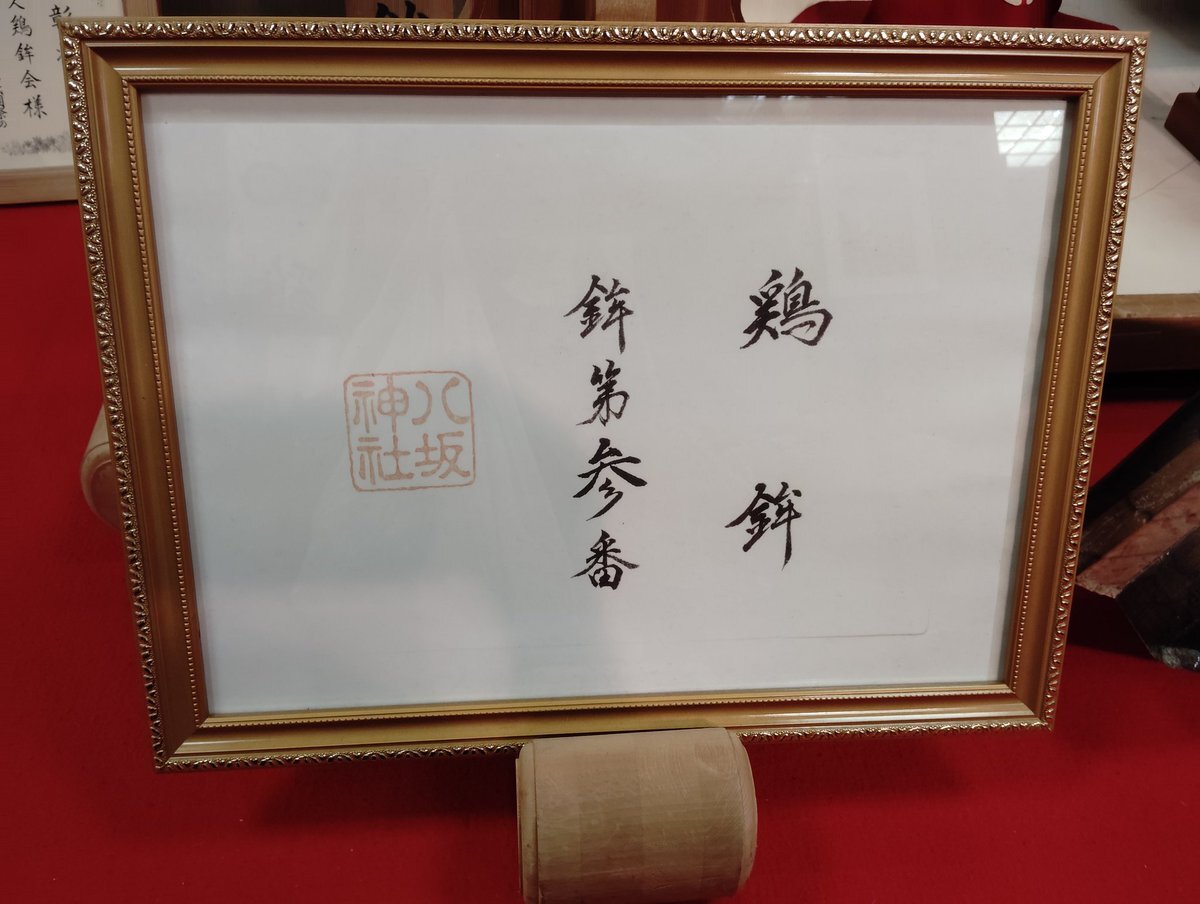 鶏鉾
鉾第参番
八坂
神社
鶏鉾会様